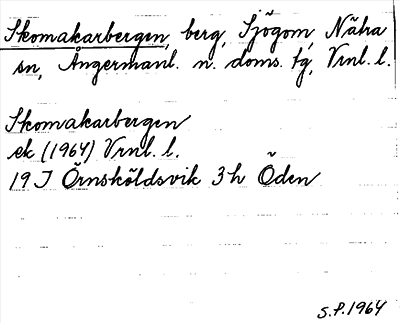 Skomakarbergen, berg, Sjögom, Nätra
sn, Ångermanl. n. doms. fg, Vrnl. l.
Skomakarbergen
ek (1964) Vrnl. l.
19 J Örnsköldsvik 3 h Öden
S.P. 1964